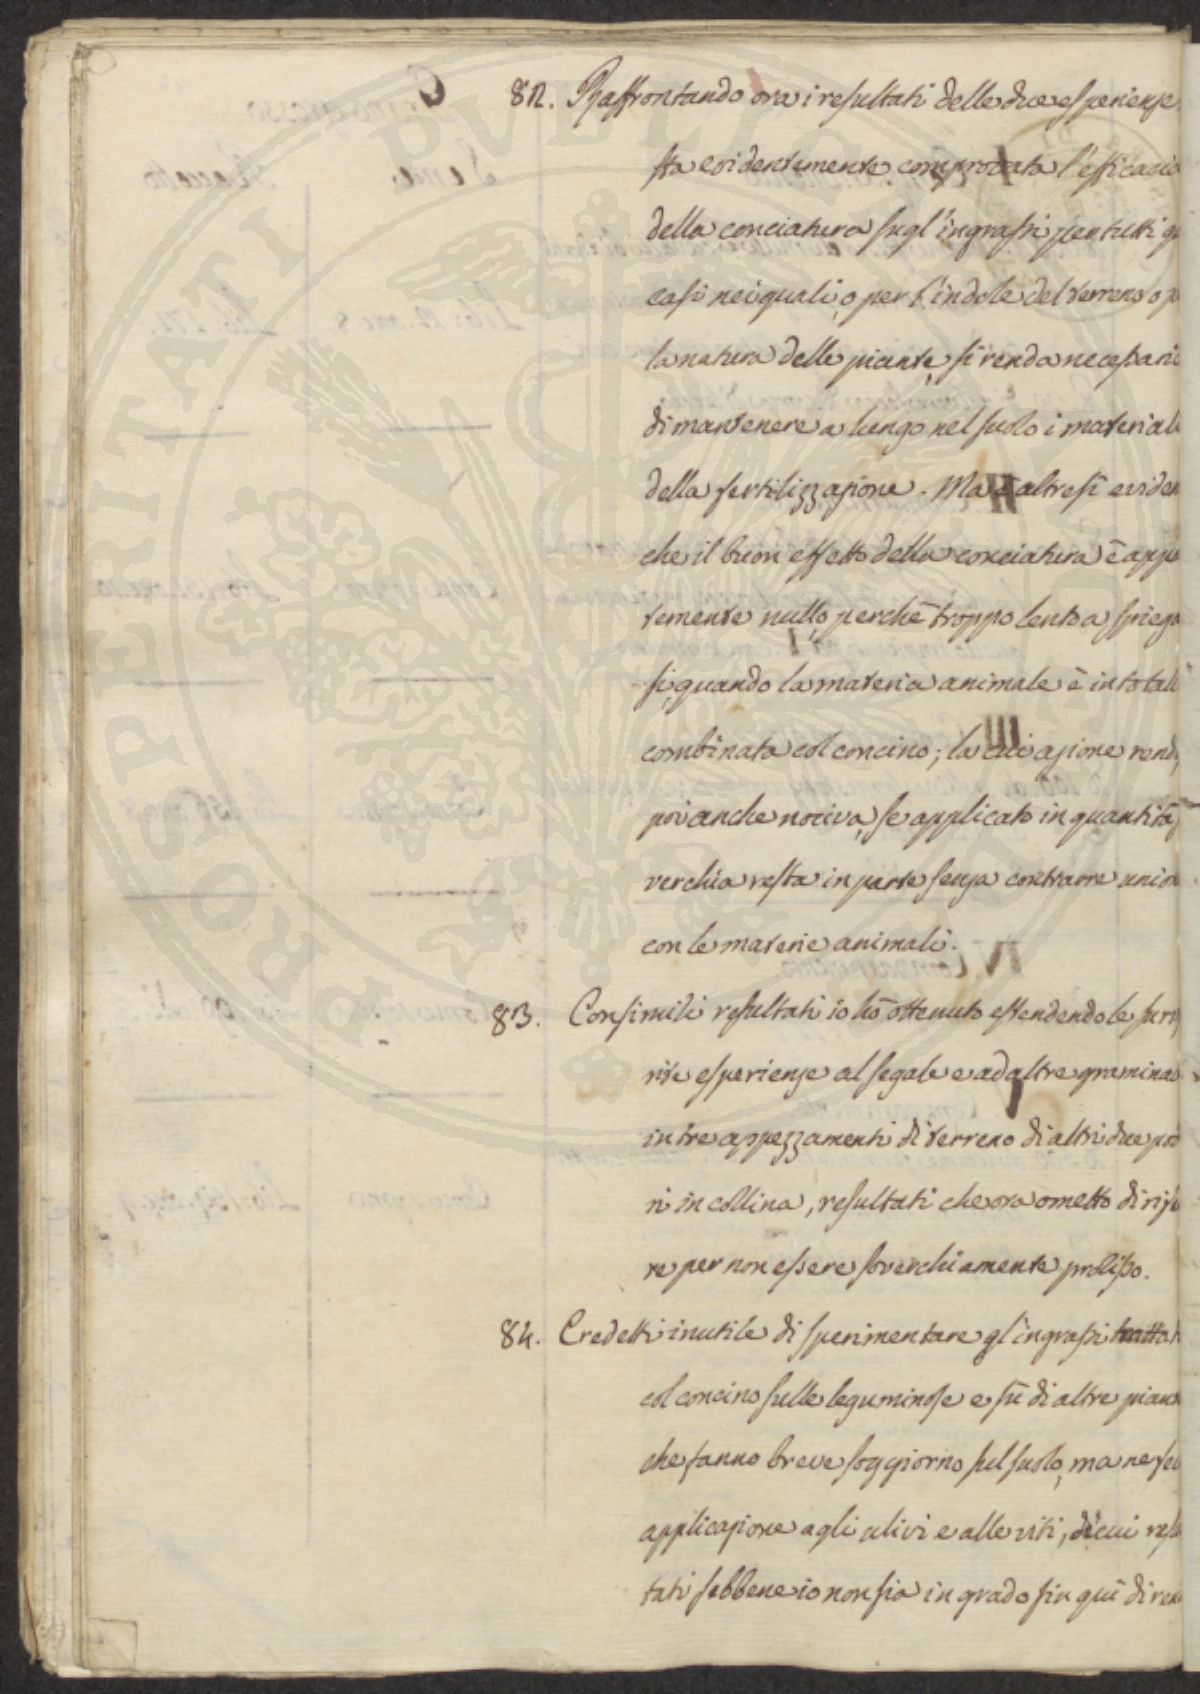 82. Raffrontando ora i resultati delle due esperienze
sta evidentemente comprovata l'efficacia
della conciatura sugl'ingrassi per tutti q
casi nei quali, o per l'indole del terreno o p
la natura delle piante, si renda necessari
di mantenere a lungo nel suolo i material
della fertilizzazione. Ma è altresì eviden
che il buon effetto della conciatura è appa
temente nullo, perchè troppo lento a spiega
si, quando la materia animale è in totali
combinata col concino; la cui azione rend
poi anche nociva, se applicato in quantità
verchia resta in parte senza contrarre union
con le materie animali.
83. Consimili resultati io hò ottenuto estendendo le
rite esperienze al segale e ad altre graminac
in tre appezzamenti di terreno di altri due pod
ri in collina, resultati che ora ometto di rife
re per non essere soverchiamente prolisso.
84. Credetti inutile di sperimentare gl'ingrassi trattat
col concino sulle leguminose e sù di altre piant
che fanno breve soggiorno sul suolo, ma ne fei
applicazione agli ulivi e alle viti, di cui resul
tati sebbene io non sia in grado fin quì di ren
PROPERITATI PVBLI